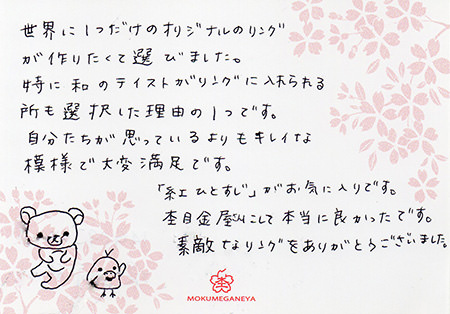 世界に1つだけのオリジナルのリング
が作りたくて選びました。
特に和のテイストがリングに入れられる
所も選択した理由の1つです。
自分たちが思っているよりもキレイな
模様で大変満足です。
「紅ひとすじ」がお気に入りです。
杢目金屋さんにして本当に良かったです。
素敵なリングをありがとうございました。
MOKUMEGANEYA